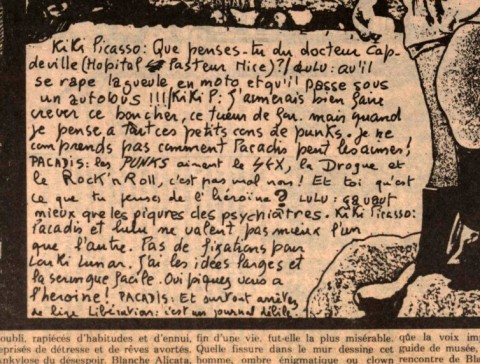 KiKi Picasso: Que penses-tu du docteur Cap-
deville (Hopital Pasteur Nice)?/LULU: qu'il
se rape la gueule en moto et qu'il passe sous
un autobus !!!/KiKi P: J'aimerais bien faire
crever ce boucher, ce tueur de fou. mais quand
je pense à tout ces petits cons de punks. je ne
comprends pas comment Pacadis peut les aimer!
PACADIS: les PUNKS aiment le SEX, la Drogue et
le Rock'n Roll, c'est pas mal non! Et toi qu'est
ce que tu penses de l'héroine? LULU: ça vaut
mieux que les piqures des psychiatres. KiKi Picasso:
Pacadis et lulu ne valent pas mieux l'un
que l'autre. Pas de fixations pour
Lunar. J'ai les idées larges et
la seringue facile. Oui piquez vous a
l'heroine! PACADIS: Et surtout arrêtez
de lire Libération: c'est un journal débile
oubli, rapiécés d'habitudes et d'ennui,
eprisés de détresse et de rêves avortés.
nkylose du désespoir. Blanche Alicata,
fin d'une vie, fut-elle la plus misérable.
Quelle fissure dans le mur dessine cet
homme, ombre énigmatique ou clown
que la voix
guide de musée,
rencontre de